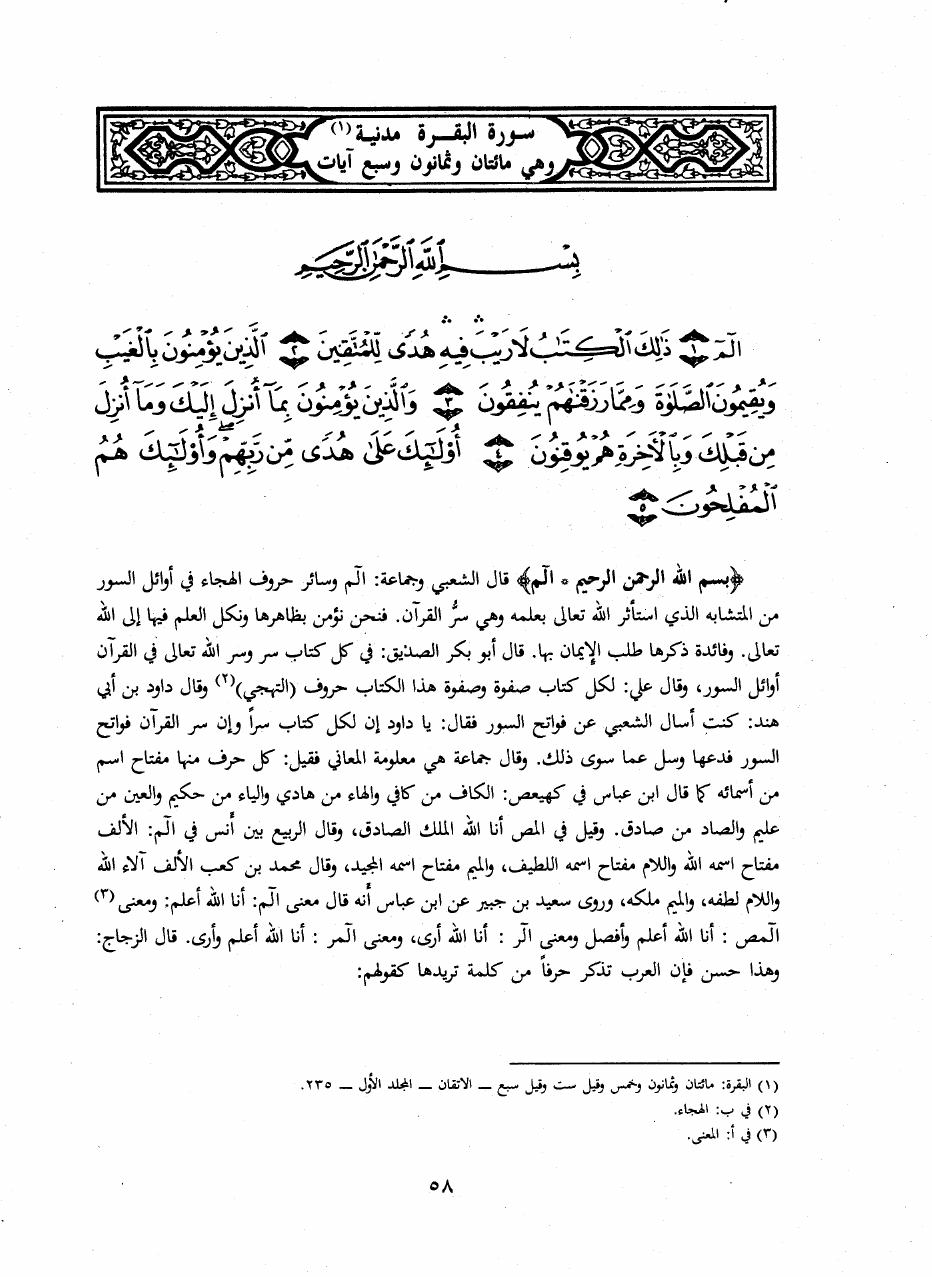 سورة البقــرة مدنيـة (١)
وهي مائتان وثمانون وسبع آيات
بِسْمِ ٱللَّهِ ٱلرَّحْمَٰنِ ٱلرَّحِيمِ
الٓمٓ ١ ذَٰلِكَ ٱلْكِتَٰبُ لَا رَيْبَ ۛ فِيهِ ۛ هُدًى لِّلْمُتَّقِينَ ٢ ٱلَّذِينَ يُؤْمِنُونَ بِٱلْغَيْبِ
وَيُقِيمُونَ ٱلصَّلَوٰةَ وَمِمَّا رَزَقْنَٰهُمْ يُنفِقُونَ ٣ وَٱلَّذِينَ يُؤْمِنُونَ بِمَآ أُنزِلَ إِلَيْكَ وَمَآ أُنزِلَ
مِن قَبْلِكَ وَبِٱلْأَخِرَةِ هُمْ يُوقِنُونَ ٤ أُو۟لَٰٓئِكَ عَلَىٰ هُدًى مِّن رَّبِّهِمْ ۖ وَأُو۟لَٰٓئِكَ هُمُ
ٱلْمُفْلِحُونَ ٥
﴿بسم الله الرحمن الرحيم * الٓم﴾ قال الشعبي وجماعة: الٓم وسائر حروف الهجاء في أوائل السور
من المتشابه الذي استأثر الله تعالى بعلمه وهي سرُّ القرآن. فنحن نؤمن بظاهرها ونكل العلم فيها إلى الله
تعالى. وفائدة ذكرها طلب الإيمان بها. قال أبو بكر الصديق: في كل كتاب سر وسر الله تعالى في القرآن
أوائل السور، وقال علي: لكل كتاب صفوة وصفوة هذا الكتاب حروف (التهجي)(٢) وقال داود بن أبي
هند: كنت أسال الشعبي عن فواتح السور فقال: يا داود إن لكل كتاب سراً وإن سر القرآن فواتح
السور فدعها وسل عما سوى ذلك. وقال جماعة هي معلومة المعاني فقيل: كل حرف منها مفتاح اسم
من أسمائه كما قال ابن عباس في كهيعص: الكاف من كافي والهاء من هادي والياء من حكيم والعين من
عليم والصاد من صادق. وقيل في المص أنا الله الملك الصادق، وقال الربيع بين أنس في الٓم: الألف
مفتاح اسمه الله واللام مفتاح اسمه اللطيف، والميم مفتاح اسمه المجيد، وقال محمد بن كعب الألف آلاء الله
واللام لطفه، والميم ملكه، وروى سعيد بن جبير عن ابن عباس أنه قال معنى الٓم: أنا الله أعلم: ومعنى(٣)
الٓمص : أنا الله أعلم وأفصل ومعنى الٓر : أنا الله أرى، ومعنى الٓمر : أنا الله أعلم وأرى. قال الزجاج:
وهذا حسن فإن العرب تذكر حرفاً من كلمة تريدها كقولهم:
(١) البقرة: مائتان وثمانون وخمس وقيل ست وقيل سبع — الاتقان — المجلد الأول — ٢٣٥.
(٢) في ب: الهجاء.
(٣) في أ: المعنى.
٥٨